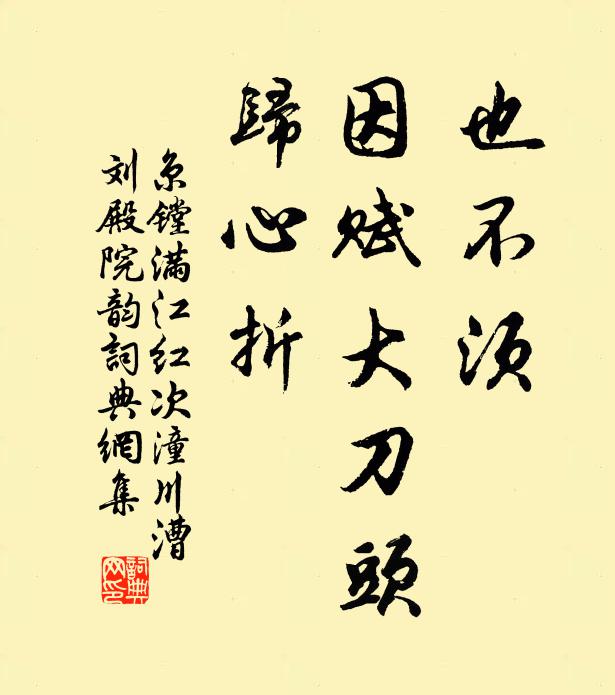 也不须
因赋大刀頭
歸心折
京镗满江红次潼川漕
刘殿院韵詞典網集
詞典
网印